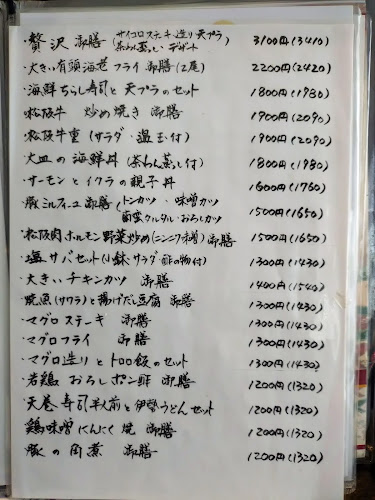 ・贅沢 御膳 (サイコロステーキ・造り・天プラ 茶わん蒸し・デザート 3100円(3410)
・大きい有頭海老フライ 御膳(2尾) 2200円(2420)
・海鮮ちらし寿司と 天プラのセット 1800円(1980)
・松阪牛 炒め焼き 御膳 1900円(2090)
・松阪牛重(サラダ・温玉付) 1900円(2090)
・大皿の海鮮丼(茶わん蒸し付) 1800円(1980)
・サーモンとイクラの親子丼 1600円(1760)
・豚ミルフィーユ御膳(トンカツ・味噌カツ タルタル・おろしカツ 1500円(1650)
・松阪肉ホルモン野菜炒め(ニンニク味噌)御膳 1500円(1650)
・塩サバセット(小鉢・サラダ・酢の物付) 1300円(1430)
・大きいチキンカツ 御膳 1400円(1540)
・焼魚(サワラ)と揚げだし豆腐 御膳 1300円(1430)
・マグロステーキ 御膳 1300円(1430)
・マグロフライ 御膳 1300円(1430)
・マグロ造りとトロロ飯のセット 1300円(1430)
・若鶏 おろしポン酢 御膳 1200円(1320)
・天巻寿司半人前と伊勢うどんセット 1200円(1320)
・鶏味噌にんにく焼 御膳 1200円(1320)
・豚の角煮 御膳 1200円(1320)